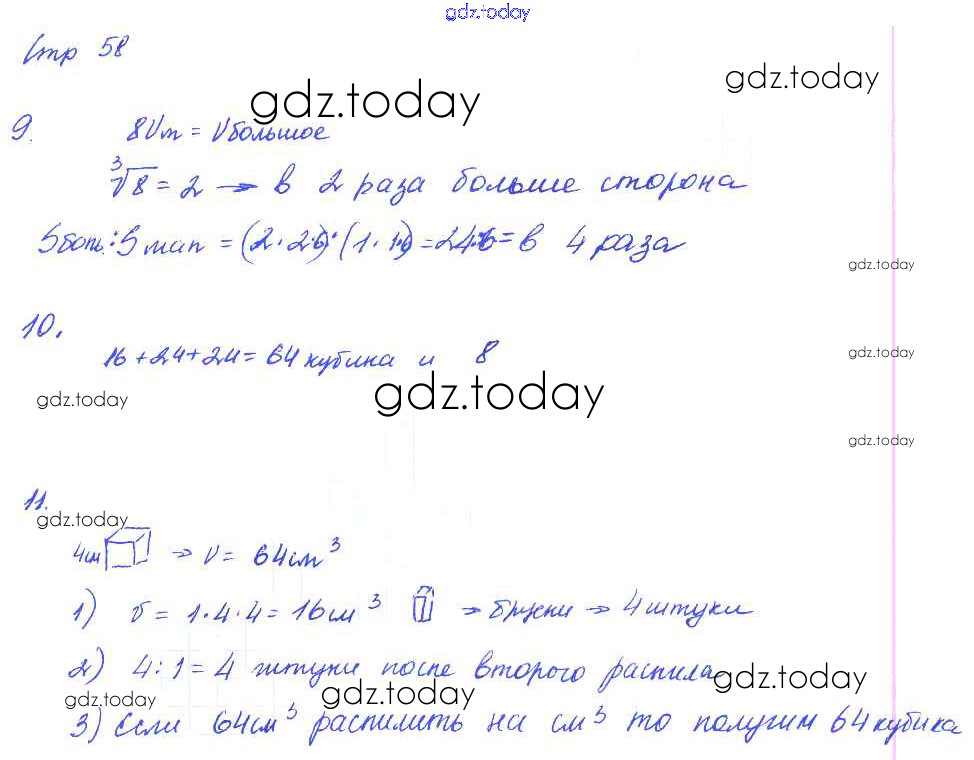 gdz.today
Стр 58
gdz.today
gdz.today
9. 8Vm = Vбольшое
∛8 = 2 → в 2 раза больше сторона
Sбольш : Sмал = (2·2·6) : (1·1·6) = 24:6 = в 4 раза
gdz.today
10.
16+24+24 = 64 кубика и 8
gdz.today
gdz.today
gdz.today
gdz.today
11.
gdz.today
4см → V = 64см³
1) V = 1·4·4 = 16см³ → бруски → 4 штуки
2) 4:1 = 4 штуки после второго распила
gdz.today
gdz.today
gdz.today
3) Если 64см³ распилить на см³ то получим 64 кубика